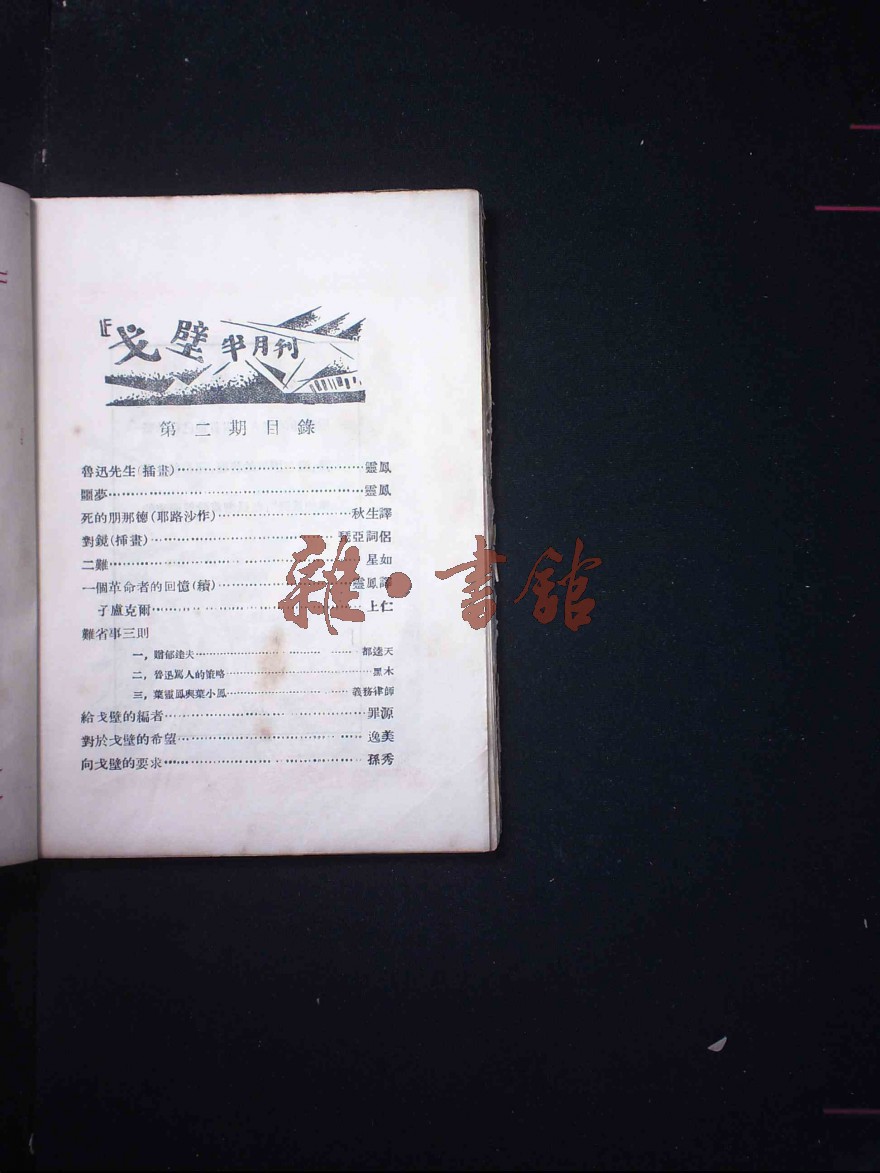 戈壁半月刊
第二期目錄
魯迅先生(插畫)…靈鳳
噩夢…靈鳳
死的朋那德(耶路沙作)…秋生譯
對鏡(挿畫)…琵亞詞侶
二難…星如
一個革命者的回憶(續)…靈鳳譯
子盧克爾…上仁
難省事三則
一，贈郁達夫…都逵天
二，魯迅罵人的策略…黑木
三，葉靈鳳與葉小鳳…義務律師
給戈壁的編者…罪源
對於戈壁的希望…逸美
向戈壁的要求…孫秀
雜·書館